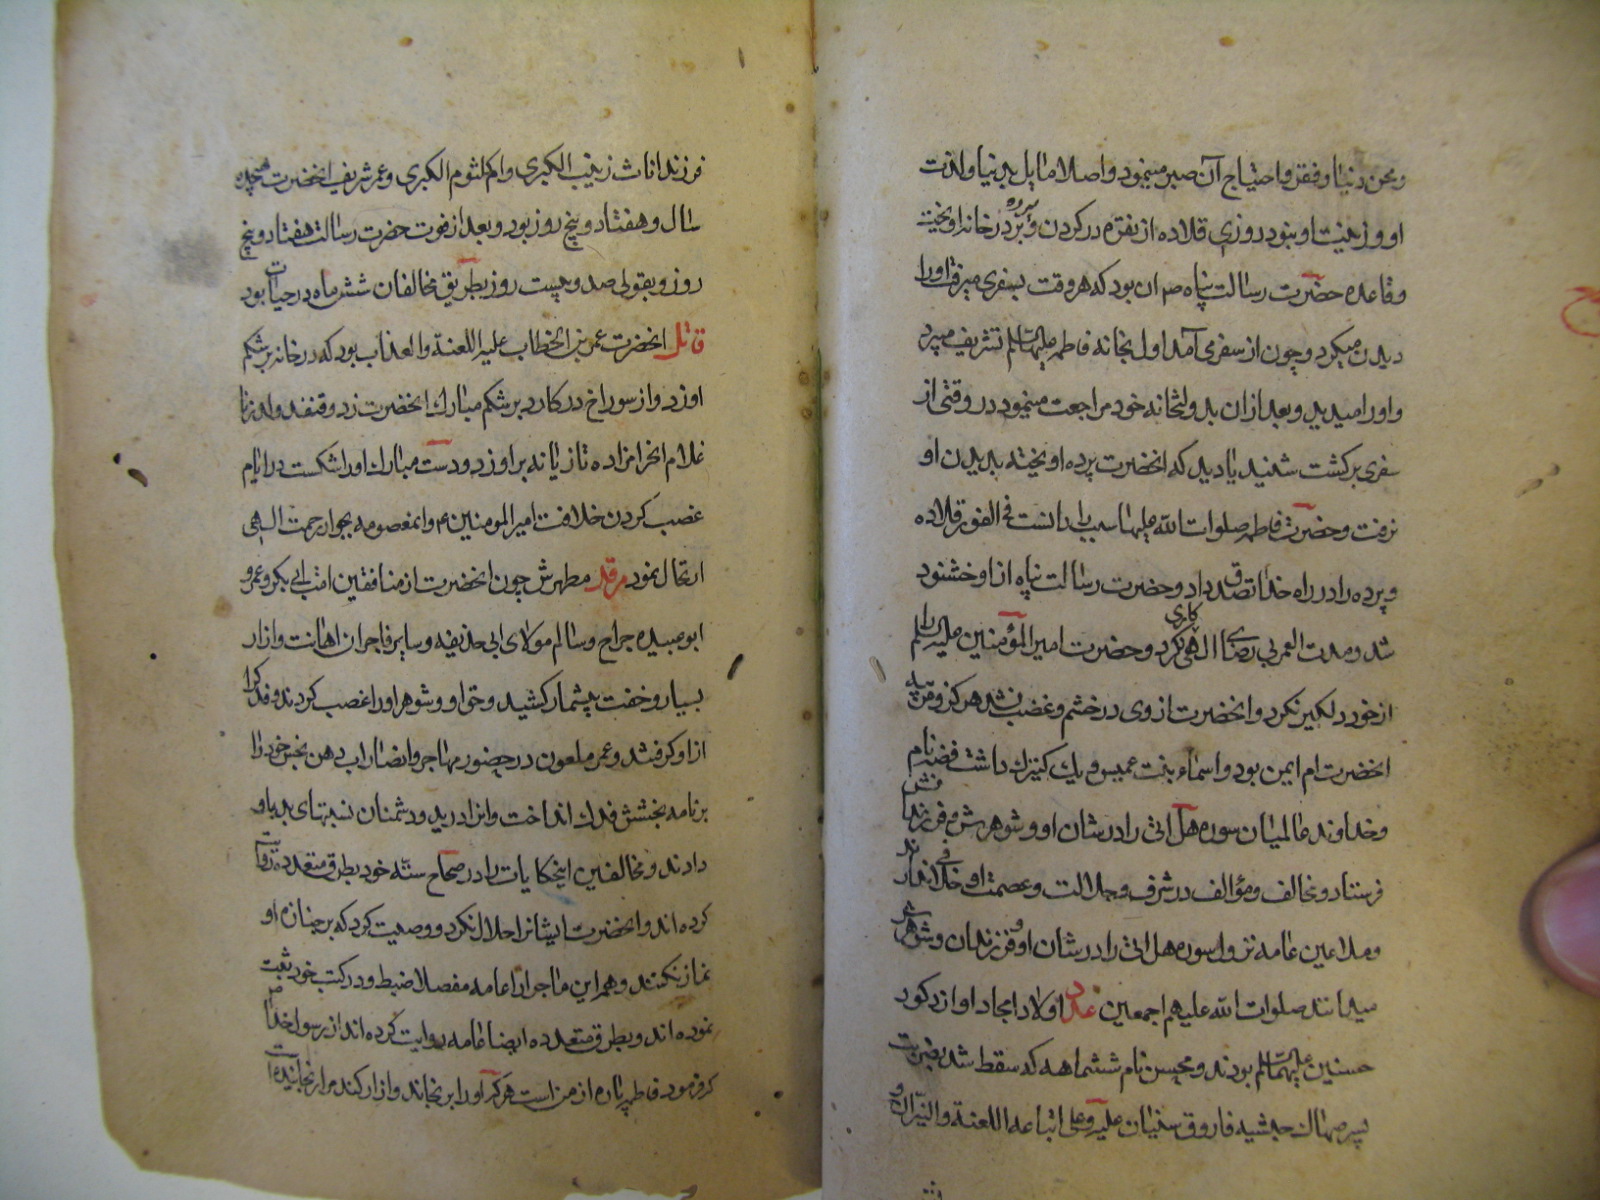 ومحن دنیا و فقر و احتیاج آن صبر مینمود و اصلا مایل بدنیا و لذت
او و زینت او نبود روزی قلاده از نقره در کردن و پرده بر در خانه اویخت
و قاعده حضرت رسالت پناه ص ان بود که هر وقت بسفری میرفت او را
دیدن میکرد و چون از سفر می آمد اول بخانه فاطمه علیها السلم تشریف میبرد
و او را میدید و بعد از ان بدولتخانه خود مراجعت مینمود در وقتی از
سفری برکشت شنید یا دید که انحضرت پرده اویخته بدیدن او
نرفت و حضرت فاطمه صلوات الله علیها سبب را دانست فی الفور قلاده
و پرده را در راه خدا تصدق داد و حضرت رسالت پناه از او خشنود
شد و مدت العمر بی رضای الهی کاری نکرد و حضرت امیر المؤمنین علیه السلم را
از خود دلکیر نکرد و انحضرت از وی در خشم و غضب نشد هرکز و
انحضرت ام ایمن بود و اسماء بنت عمیس و یک کنیزک داشت فضه نام
و خداوند عالمیان سوره هل اتی را در شان او و شوهرش و فرزندانش
فرستاد و مخالف و مؤالف در شرف و جلالت و عصمت او خلافی ندارند
و ملاعین عامه نزول سوره هل اتی را در شان او و فرزندان و شوهرش
میدانند صلوات الله علیهم اجمعین عدد اولاد امجاد او از ذکور
حسنین علیهما السلم بودند و محسن نام ششماهه که سقط شد بضربت
پسر صهاک حبشیه فاروق سنیان علیه و علی اتباعه اللعنة والنیران و
فرزند اناث زینب الکبری و ام کلثوم الکبری و عمر شریف انحضرت هیجده
سال و هفتاد و پنج روز بود و بعد از فوت حضرت رسالت هفتاد و پنج
روز و بقولی صد و بیست روز بطریق مخالفان شش ماه در حیات بود
قاتل انحضرت عمر بن الخطاب علیه اللعنة والعذاب بود که در خانه بر شکم
او زد و از سوراخ در کارد بر شکم مبارک انحضرت زد و قنفذ ولد زنا
غلام انحرامزاده تازیانه بر او زد و دست مبارک او را شکست در ایام
غصب کردن خلافت امیر المومنین ع و انمعصومه بجوار رحمت الهی
ارتحال نمود مرقد مطهرش چون انحضرت از منافقین امت ابی بکر و عمر و
ابو عبیده جراح و سالم مولای ابی حذیفه و سایر فاجران اهانت و ازار
بسیار و خفت بیشمار کشید و حق او و شوهر او را غصب کردند و فدک را
از او کرفتند و عمر ملعون در حضور مهاجر و انصار اب دهن نجس خود را
بر نامه بخشش فدک انداخت و انرا درید و دشمنان نسبتهای بد باو
دادند و مخالفین اینحکایات را در صحاح ستّه خود بطرق متعدده روایت
کرده اند و انحضرت ایشانرا حلال نکرد و وصیت کرد که بر جنازه او
نماز نکنند و هم این ماجرا را عامه مفصلا ضبط و در کتب خود ثبت
نموده اند و بطرق متعدده ایضا عامه روایت کرده اند از رسول خدا ص
که فرمود فاطمه پاره از من است هر که او را برنجاند و ازار کند مرا رنجانیده